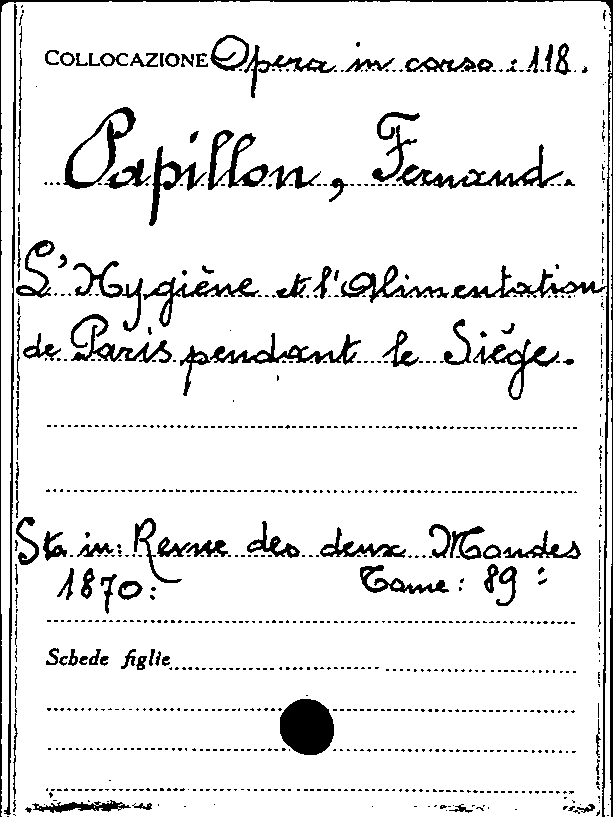 COLLOCAZIONE Opera in corso : 118.
Papillon, Fernand.
L'Hygiène et l'Alimentation
de Paris pendant le Siége.
Sta in: Revue des deux Mondes
1870: Tome: 89:
Schede figlie